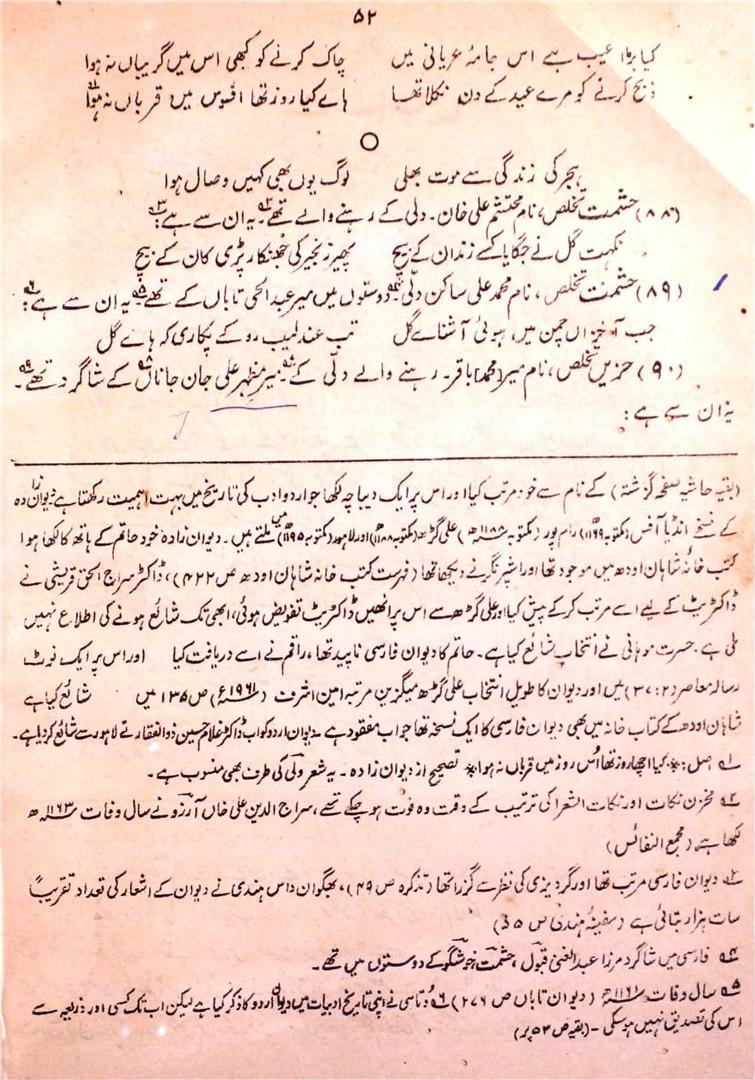 ۵۲
کیا بڑا عیب ہے اس جامۂ عریانی میں چاک کرنے کو کبھی اس میں گریباں نہ ہوا
ذبح کرنے کو مرے عید کے دن نکلا تھا ہاے کیا روز تھا افسوس میں قرباں نہ ہوا
ہجر کی زندگی سے موت بھلی لوگ یوں بھی کہیں وصال ہوا
(۸۸) حشمت تخلص، نام محتشم علی خان۔ دلی کے رہنے والے تھے۔ یہ ان سے ہے:
نکہت گل نے جگایا کسے زندان کے بیچ پھیر زنجیر کی جھنکار پڑی کان کے بیچ
(۸۹) حشمت تخلص، نام محمد علی ساکن دلی۔ دوستوں میں میر عبدالحی تاباں کے تھے۔ یہ ان سے ہے:
جب آ خزاں چمن میں، ہوئی آشناے گل تب عندلیب رو کے پکاری کہ ہاے گل
(۹۰) حزیں تخلص، نام میر (محمد) باقر۔ رہنے والے دلی کے۔ میر مظہر علی جان جاناں کے شاگرد تھے۔
یہ ان سے ہے:
(بقیہ حاشیہ صفحہ گزشتہ) کے نام سے خود مرتب کیا اور اس پر ایک دیباچہ لکھا جو اردو ادب کی تاریخ میں بہت اہمیت رکھتا ہے دیوان زادہ
کے نسخے انڈیا آفس (مکتوبہ ۱۱۷۹ھ) رام پور (مکتوبہ ۱۱۸۸ھ) علی گڑھ (مکتوبہ ۱۱۸۸ھ) اور لاہور (مکتوبہ ۱۱۹۵ھ) میں ملتے ہیں۔ دیوان زادہ خود حاتم کے ہاتھ کا لکھا ہوا
کتب خانۂ شاہان اودھ میں موجود تھا اور اشپرنگر نے دیکھا تھا (فہرست کتب خانۂ شاہان اودھ ص ۴۲۲)، ڈاکٹر سراج الحق قریشی نے
ڈاکٹریٹ کے لیے اسے مرتب کر کے پیش کیا اور علی گڑھ سے اس پر انھیں ڈاکٹریٹ تفویض ہوئی، ابھی تک شائع ہونے کی اطلاع نہیں
ملی ہے۔ حسرت موہانی نے انتخاب شائع کیا ہے۔ حاتم کا دیوان فارسی ناپید تھا، راقم نے اسے دریافت کیا اور اس پر ایک نوٹ
رسالہ معاصر (۲:۳۷) میں اور دیوان کا طویل انتخاب علی گڑھ میگزین مرتبہ امین اشرف (۱۹۶۱ء) ص ۱۳۵ میں شائع کیا ہے
شاہان اودھ کے کتاب خانہ میں بھی دیوان فارسی کا ایک نسخہ تھا جو اب مفقود ہے۔ دیوان اردو کو اب ڈاکٹر غلام حسین ذوالفقار نے لاہور سے شائع کر دیا ہے۔
۱؎ اصل: ٭ کیا اچھا روز تھا اُس روز میں قرباں نہ ہوا ٭ تصحیح از دیوان زادہ۔ یہ شعر ولی کی طرف بھی منسوب ہے۔
۲؎ مخزن نکات اور نکات الشعرا کی ترتیب کے وقت وہ فوت ہو چکے تھے، سراج الدین علی خاں آرزو نے سال وفات ۱۱۶۳ھ
لکھا ہے (مجمع النفائس)
۳؎ دیوان فارسی مرتب تھا اور گردیزی کی نظر سے گزرا تھا (تذکرہ ص ۴۹)، بھگوان داس ہندی نے دیوان کے اشعار کی تعداد تقریباً
سات ہزار بتائی ہے (سفینۂ ہندی ص ۵۵)
۴؎ فارسی میں شاگرد مرزا عبدالغنی قبول، حشمت، خوشگو کے دوستوں میں تھے۔
۵؎ سال وفات ۱۱۶۱ھ (دیوان تاباں ص ۲۷۶) ۶؎ دتاسی نے اپنی تاریخ ادبیات میں دیوان اردو کا ذکر کیا ہے لیکن اب تک کسی اور ذریعہ سے
اس کی تصدیق نہیں ہو سکی۔ (بقیہ ص ۵۳ پر)